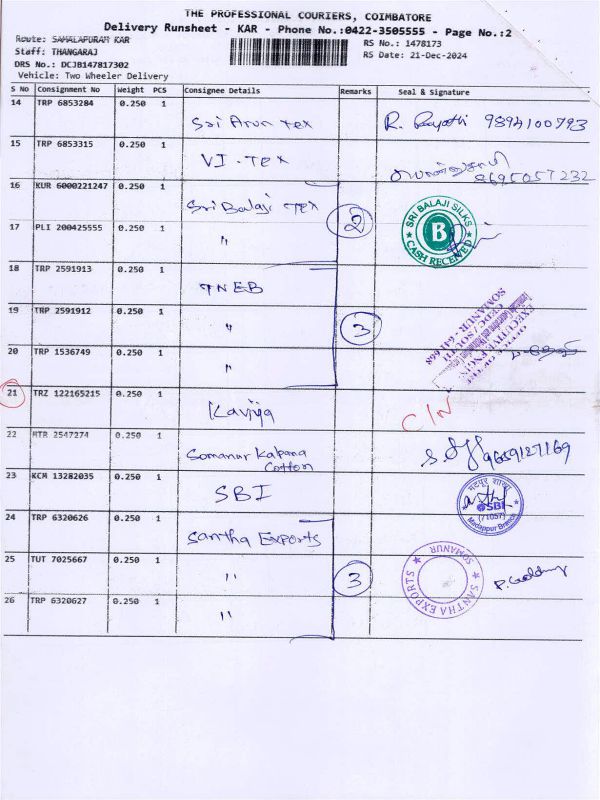 THE PROFESSIONAL COURIERS, COIMBATORE
Delivery Runsheet - KAR - Phone No.:0422-3505555 - Page No.:2
Route: SAMALAPURAM KAR
RS No.: 1478173
Staff: THANGARAJ
RS Date: 21-Dec-2024
DRS No.: DCJB147817302
Vehicle: Two Wheeler Delivery
S No Consignment No Weight PCS Consignee Details Remarks Seal & Signature
14 TRP 6853284 0.250 1 Sri Arun Tex 9894100793
15 TRP 6853315 0.250 1 VI-TEX 8695057232
16 KUR 6000221247 0.250 1 Sri Balaji Tex 2
SRI BALAJI SILKS
B
CASH RECEIVED
17 PLI 200425555 0.250 1 "
18 TRP 2591913 0.250 1 TNEB
19 TRP 2591912 0.250 1 " 3
SOMANUR - 641 668
20 TRP 1536749 0.250 1 "
21 TRZ 122165215 0.250 1 Kaviya C/N
22 MTR 2547274 0.250 1 Somanur Kalpana Cotton 9659127169
23 KCM 13282035 0.250 1 SBI
SBI
(71057)
Madappur Branch
24 TRP 6320626 0.250 1 Santha Exports
25 TUT 7025667 0.250 1 " 3
SANTHA EXPORTS
SOMANUR
26 TRP 6320627 0.250 1 "